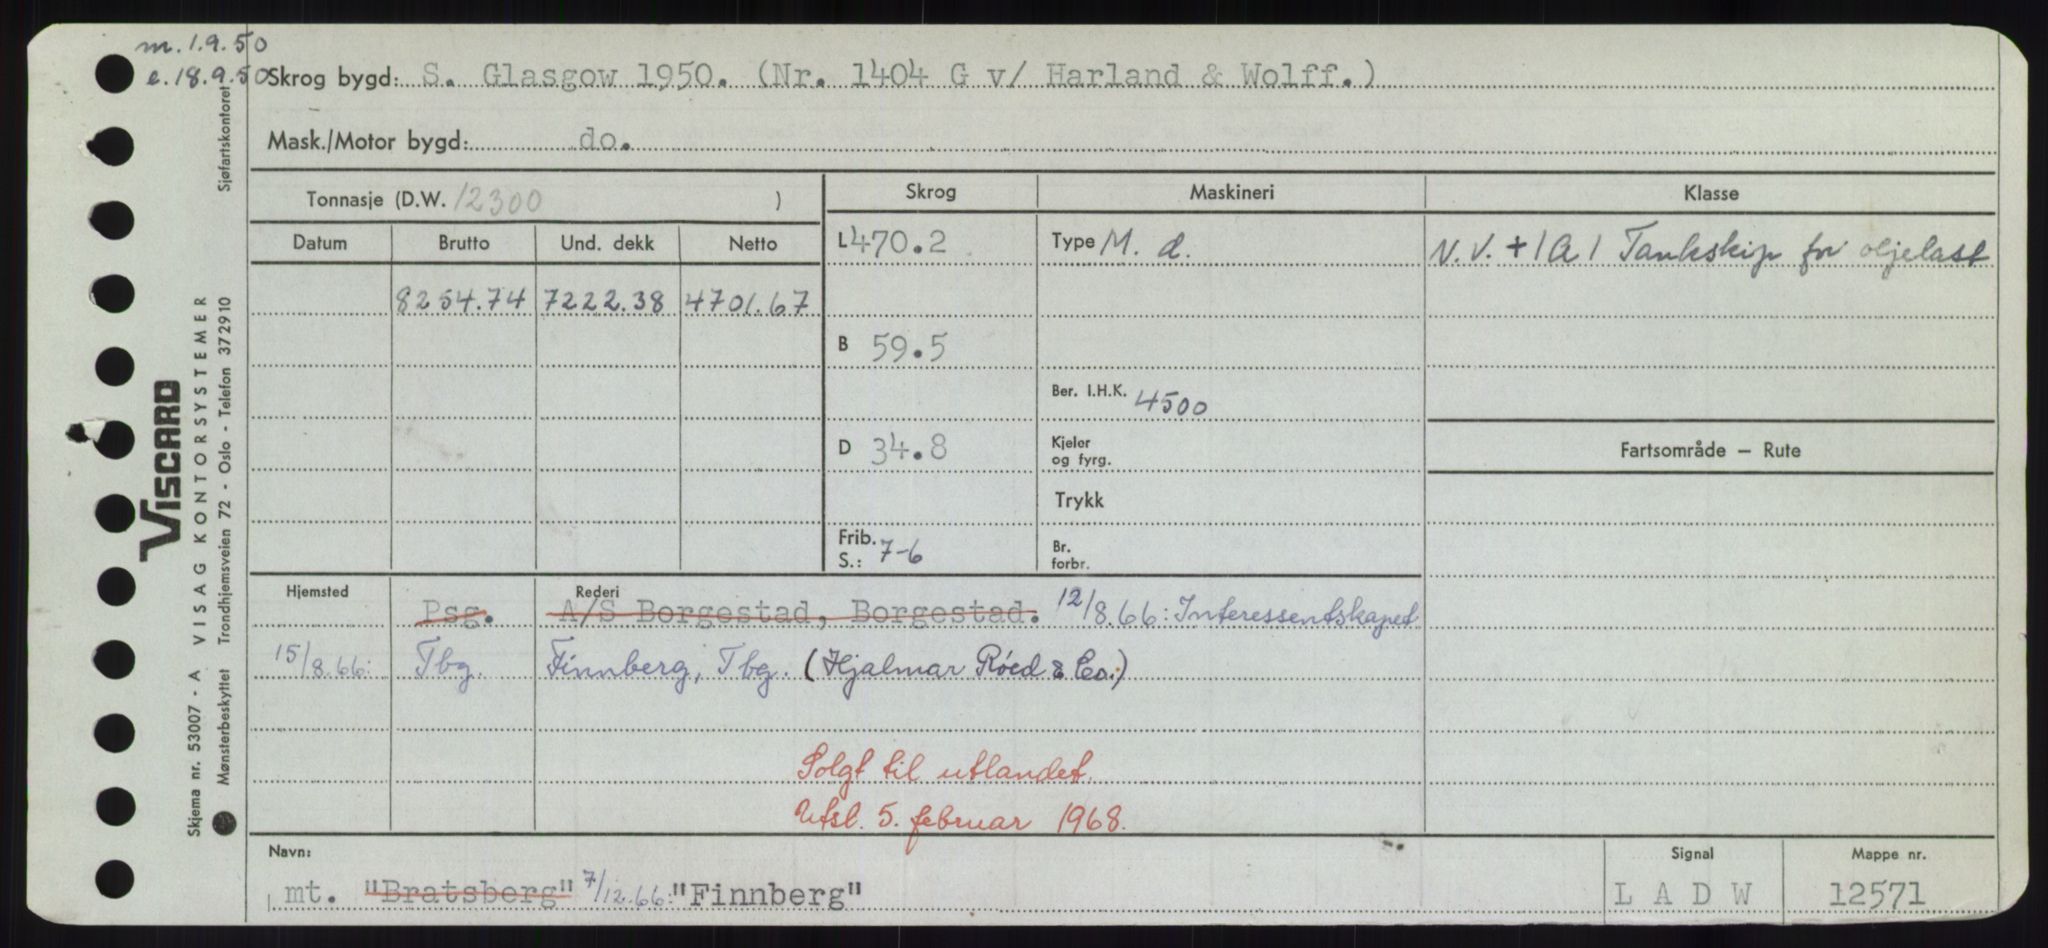 m. 1.9.50
e. 18.9.50
Skrog bygd: S. Glasgow 1950. (Nr. 1404 G v/ Harland & Wolff.)
Mask./Motor bygd: do.
Tonnasje (D.W. 12300 )
Skrog Maskineri Klasse
Datum Brutto Und. dekk Netto
L 470.2 Type M. d. N.V. + 1A1 Tankskip for oljelast
8254.74 7222.38 4701.67
B 59.5
Ber. I.H.K. 4500
D 34.8 Kjeler
og fyrg.
Fartsområde — Rute
Trykk
Frib.
S.: 7-6
Br.
forbr.
Hjemsted Rederi
Psg. A/S Borgestad, Borgestad. 12/8.66: Interessentskapet
15/8.66: Tbg. Finnberg, Tbg. (Hjalmar Røed & Co.)
Solgt til utlandet.
Utsl. 5. februar 1968.
Navn: Signal Mappe nr.
mt. "Bratsberg" 7/12.66: "Finnberg" L A D W 12571
Sjøfartskontoret
VISCARD
VISAG KONTORSYSTEMER
Trondhjemsveien 72 - Oslo - Telefon 372910
Skjema nr. 53007 - A
Mønsterbeskyttet